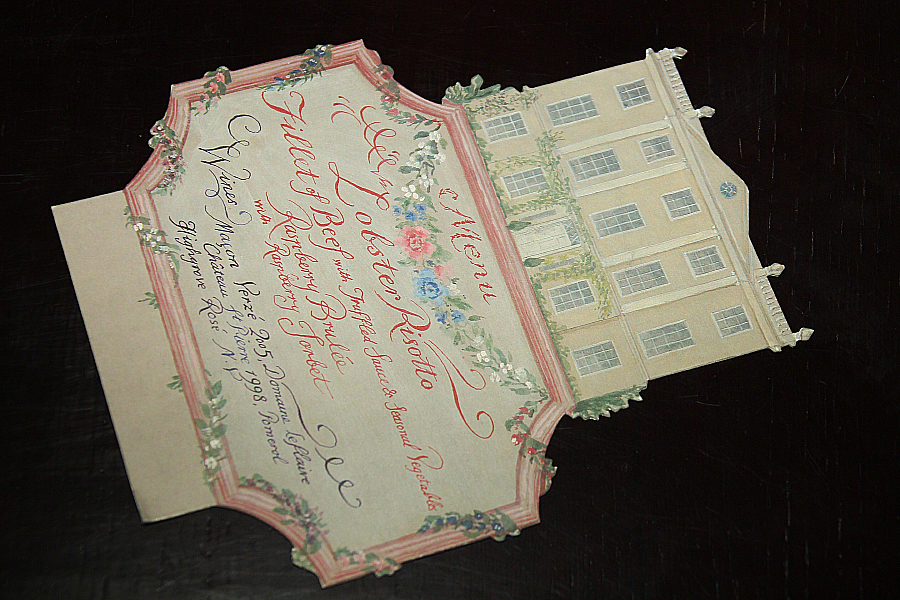 Menu
Lobster Risotto
Fillet of Beef with Truffled Sauce & Seasonal Vegetables
Raspberry Brulée
with Raspberry Sorbet
Wines - Maçon Verzé 2005, Domaine Leflaive
Château St Pierre 1998, Pomerol
Highgrove Rosé N.V